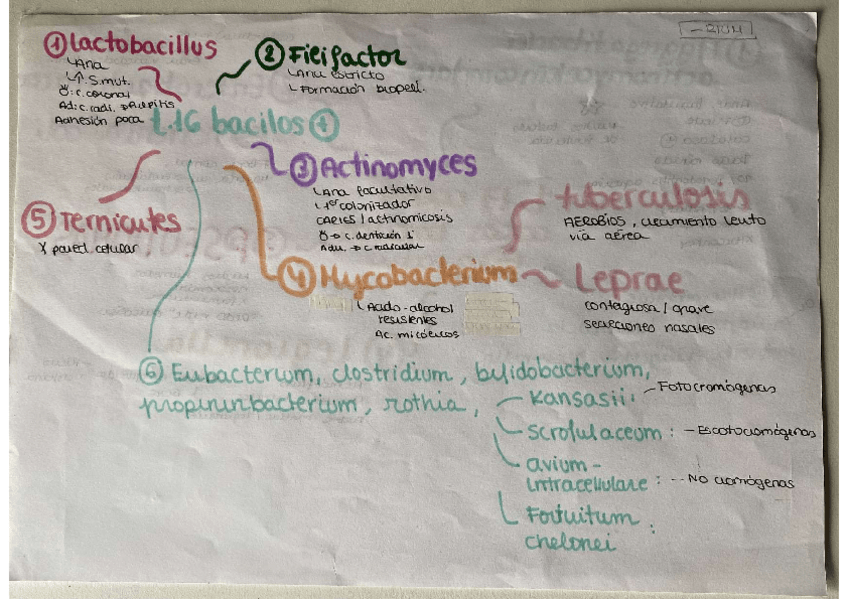 ① Lactobacillus
Ana
↑ S.mut.
c. coronal
Ad: c. radi. → Pulpitis
Adhesión poca
② Filifactor
Ana estricto
Formación biopel.
L.16 bacilos (+)
③ Actinomyces
Ana facultativo
1er colonizador
CARIES / actinomicosis
→ c. dentición 1ª
Adu. → c. radicular
tuberculosis
AEROBIOS, crecimiento lento
vía aérea
⑤ Ternicutes
X pared celular
④ Mycobacterium
Acido-alcohol
resistentes
Ac. micólicos
Leprae
contagiosa / grave
secreciones nasales
⑥ Eubacterium, clostridium, bifidobacterium,
propininbacterium, rothia,
Kansasii: - Fotocromógenas
scrofulaceum: - Escotocromógenas
avium -
intracellulare: -- No cromógenas
Fortuitum
chelonei :